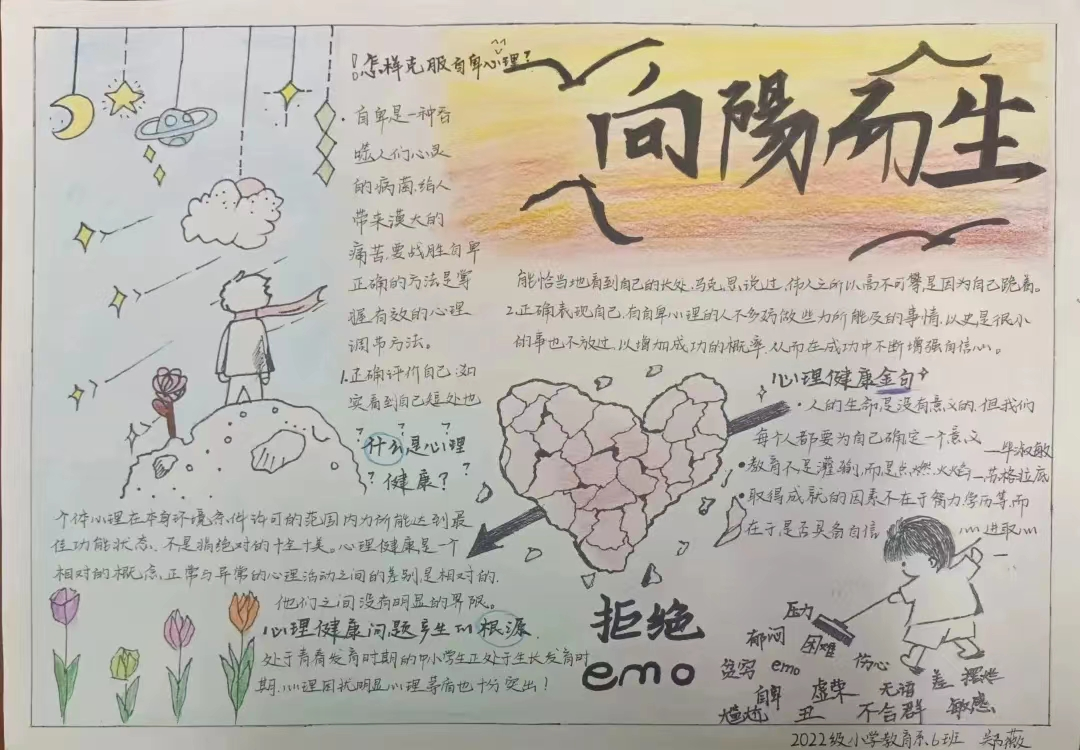 向陽而生
怎样克服自卑心理?
自卑是一种吞
噬人们心灵
的病菌,给人
带来漢大的
痛苦,要战胜自卑
正确的方法是掌
握有效的心理
调节方法。
1.正确评价自己,如
实看到自己短处也
能恰当地看到自己的长处,马克思说过,伟人之所以高不可攀是因为自己跪着。
2.正确表现自己,有自卑心理的人不多妨做些力所能及的事情,以史是很小
的事也不放过,以增加成功的概率,从而在成功中不断增强自信心。
什么是心理
健康?
个体心理在本身环境条件许可的范围内为所能达到最
佳功能状态、不是指绝对的十全十美。心理健康是一个
相对的概念,正常与异常的心理活动之间的差别,是相对的.
他们之间没有明显的界限。
心理健康问题产生的根源
处于青春发育时期的中小学生正处于生长发育时
期,心理困扰明显心理等病也十分突出!
心理健康金句
人的生命是没有意义的,但我们
每个人都要为自己确定一个意义
—毕淑敏
教育不是灌输,而是点燃火焰—苏格拉底
取得成就的因素不在于智力,学历等,而
在于是否具备自信 进取心
拒绝
emo
压力
郁闷 困难
贫穷 emo 伤心
自卑 虚荣 无语 差 摆烂
尴尬 丑 不合群 敏感
2022级小学教育系6班